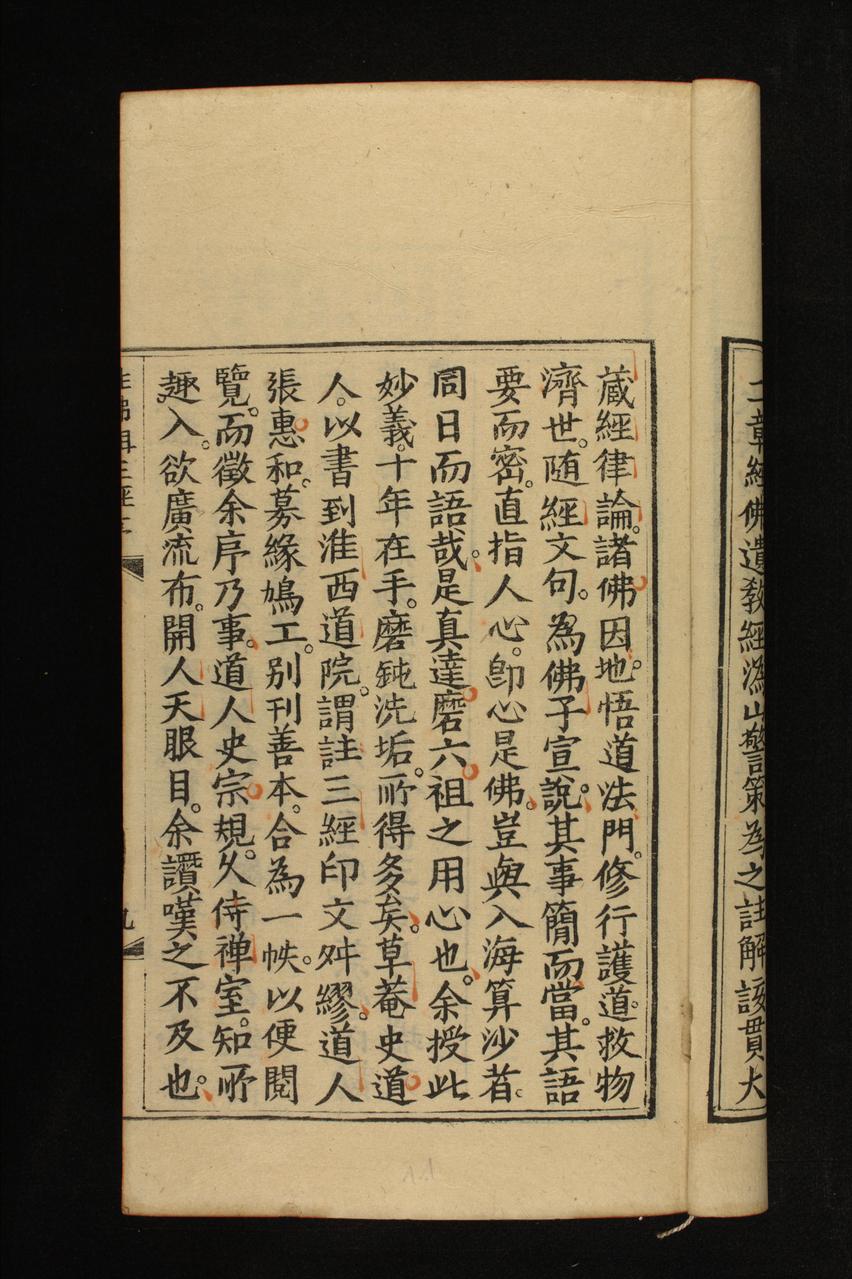 二章經佛遺教經溈山警策為之註解該貫大
藏經律論。諸佛因地。悟道法門。修行護道。救物
濟世。随經文句。為佛子宣說。其事簡而當。其語
要而密。直指人心。即心是佛。豈與入海算沙者。
同日而語哉。是真達磨六祖之用心也。余授此
妙義。十年在手。磨鈍洗垢。所得多矣。草菴史道
人。以書到淮西道院。謂註三經印文舛繆。道人
張惠和。募緣鳩工。別刊善本。合為一帙。以便閱
覽。而徵余序乃事。道人史宗規。久侍禅室。知所
趣入。欲廣流布。開人天眼目。余讚嘆之不及也。